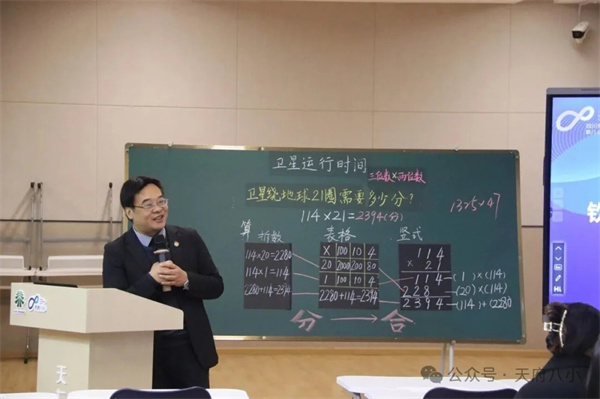 卫星运行时间
三位数×两位数
卫星绕地球21圈需要多少分?
114×21=2394(分)
1325÷47
算 拆数 表格 竖式
114×20=2280
114×1=114
2280+114=2394
× 100 10 4
20 2000 200 80
1 100 10 4
2280+114=2394
114
× 21
114 (1)×(114)
228 (20)×(114)
2394 (114)+(2280)
分 合
天
公众号 · 天府八小